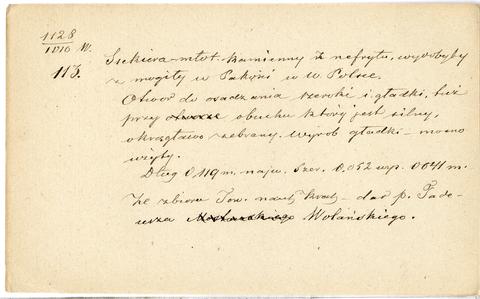 1128
1016 W.
113.
Siekiera-młot kamienny z nefrytu, wydobyty
z mogiły w Pakości w W Polsce.
Otwór do osadzania szeroki i gładki, tuż
przy otworze obuchu który jest silny,
okrągławo zebrany. Wyrób gładki – mocno
zużyty.
Dług. 0,119 m. najw. szer. 0,052 wys. 0,041 m.
Ze zbioru Tow. nauk. Krak. – dar p. Tade-
usza Wolańskiego.